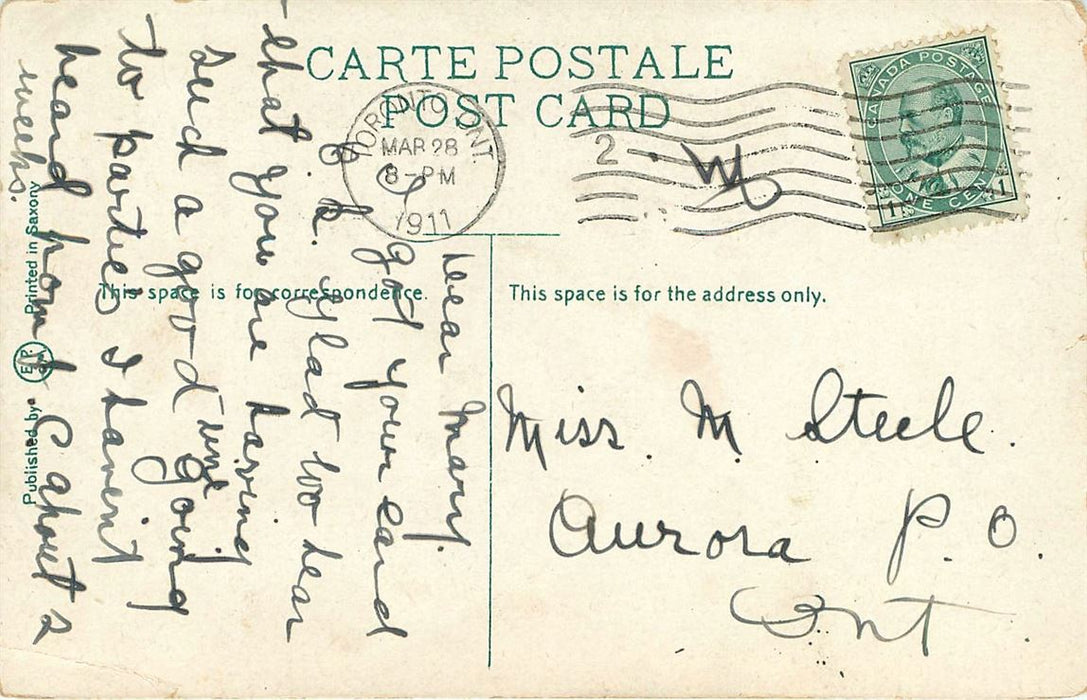 CARTE POSTALE
POST CARD
TORONTO, ONT.
MAR 28
8-PM
1911
2
CANADA POSTAGE
ONE CENT
1 1
This space is for correspondence.
This space is for the address only.
Dear Mary.
I got your card
O.K. glad too hear
that you are having
such a good time going
to parties I havent
heard from about 2
weeks.
Miss. M Steele.
Aurora P.O.
Ont.
Published by E.P. & Co. Printed in Saxony